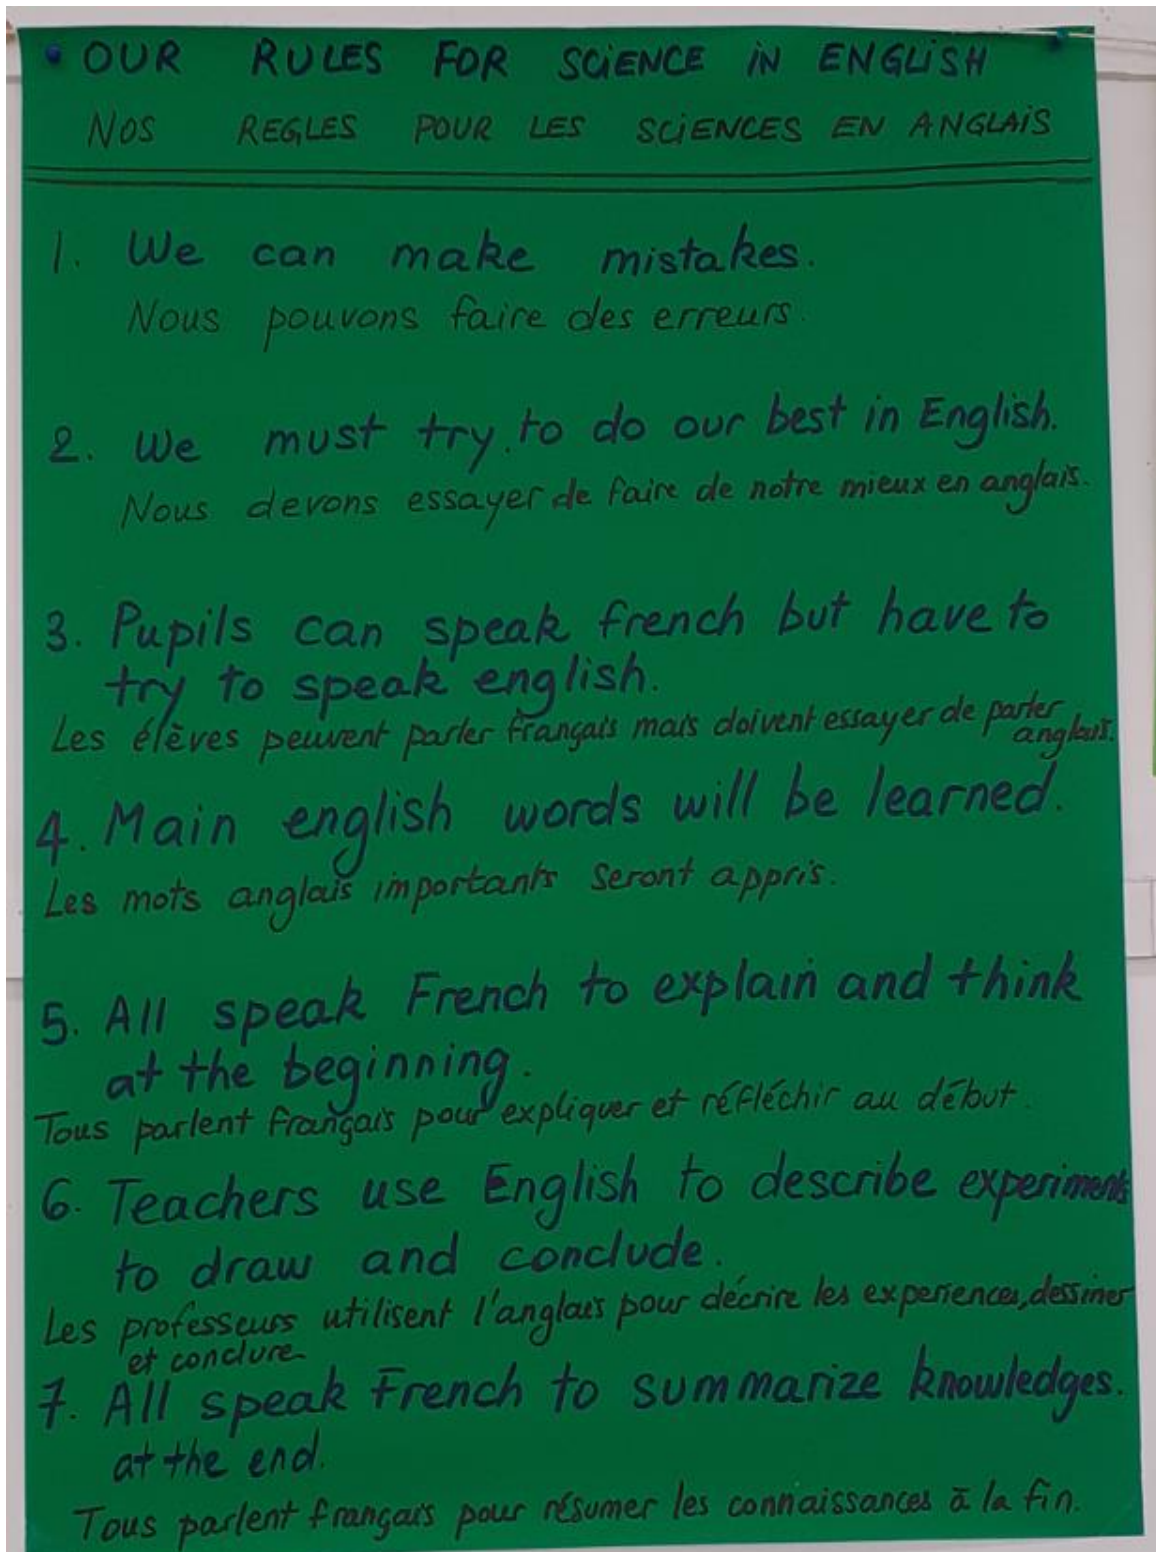 OUR RULES FOR SCIENCE IN ENGLISH
NOS REGLES POUR LES SCIENCES EN ANGLAIS
1. We can make mistakes.
Nous pouvons faire des erreurs.
2. We must try to do our best in English.
Nous devons essayer de faire de notre mieux en anglais.
3. Pupils can speak french but have to
try to speak english.
Les élèves peuvent parler français mais doivent essayer de parler
anglais.
4. Main english words will be learned.
Les mots anglais importants seront appris.
5. All speak French to explain and think
at the beginning.
Tous parlent français pour expliquer et réfléchir au début.
6. Teachers use English to describe experiments
to draw and conclude.
Les professeurs utilisent l'anglais pour décrire les experiences, dessiner
et conclure
7. All speak French to summarize knowledges.
at the end.
Tous parlent français pour résumer les connaissances à la fin.